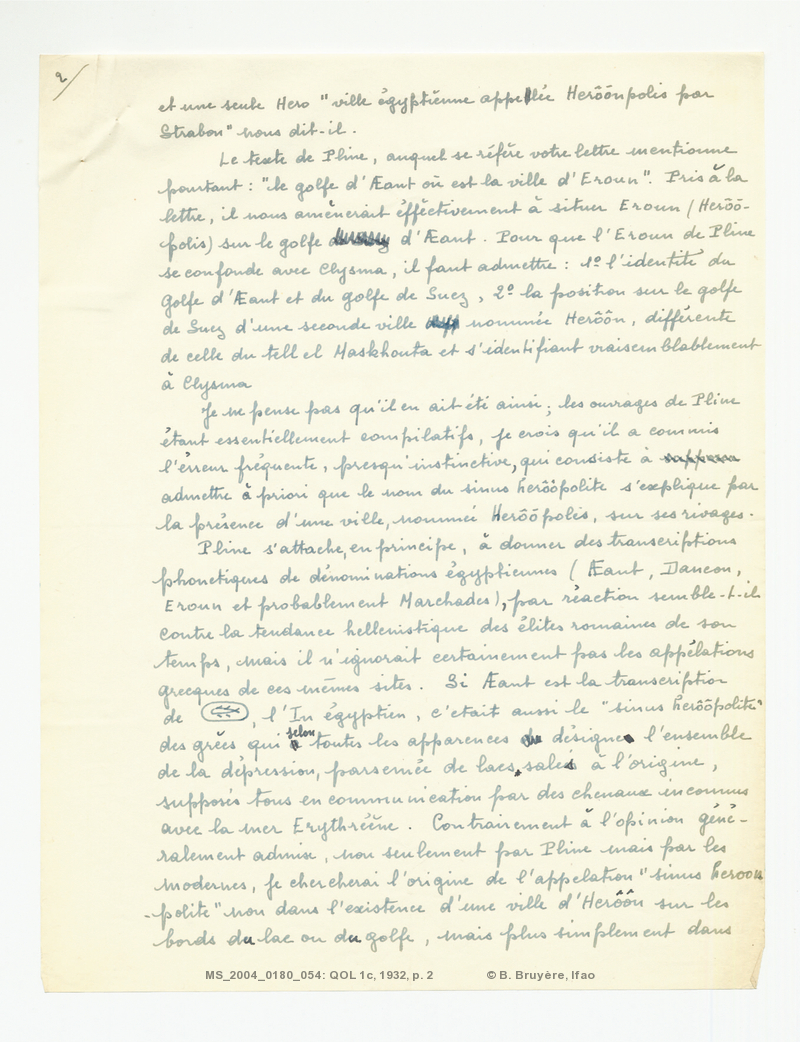 2/
et une seule Hero "ville égyptienne appellée Herôônpolis par
Strabon" nous dit-il.
Le texte de Pline, auquel se réfère votre lettre mentionne
pourtant : "le golfe d'Æant où est la ville d'Eroun". Pris à la
lettre, il nous amènerait éffectivement à situer Eroun (Herôô-
polis) sur le golfe d'Æant. Pour que l'Eroun de Pline
se confonde avec Clysma, il faut admettre : 1º l'identité du
golfe d'Æant et du golfe de Suez, 2º la position sur le golfe
de Suez d'une seconde ville nommée Herôôn, différente
de celle du tell el Maskhouta et s'identifiant vraisemblablement
à Clysma
Je ne pense pas qu'il en ait été ainsi ; les ouvrages de Pline
étant essentiellement compilatifs, je crois qu'il a commis
l'érreur fréquente, presqu'instinctive, qui consiste à
admettre à priori que le nom du sinus herôôpolite s'explique par
la présence d'une ville, nommée Herôôpolis, sur ses rivages.
Pline s'attache, en principe, à donner des transcriptions
phonetiques de dénominations égyptiennes (Æant, Daneon,
Eroun et probablement Marchades), par réaction semble-t-il
contre la tendance hellenistique des élites romaines de son
temps, mais il n'ignorait certainement pas les appélations
grecques de ces mêmes sites. Si Æant est la transcription
de , l'In égyptien, c'etait aussi le "sinus herôôpolite"
des grécs qui selon toutes les apparences désigne l'ensemble
de la dépression, parsemée de lacs, salés à l'origine,
supposés tous en communication par des chenaux inconnus
avec la mer Erythréene. Contrairement à l'opinion géné-
ralement admise, non seulement par Pline mais par les
modernes, je chercherai l'origine de l'appelation "sinus heroon
-polite" non dans l'existence d'une ville d'Herôôn sur les
bords du lac ou du golfe, mais plus simplement dans
MS_2004_0180_054: QOL 1c, 1932, p. 2 © B. Bruyère, Ifao